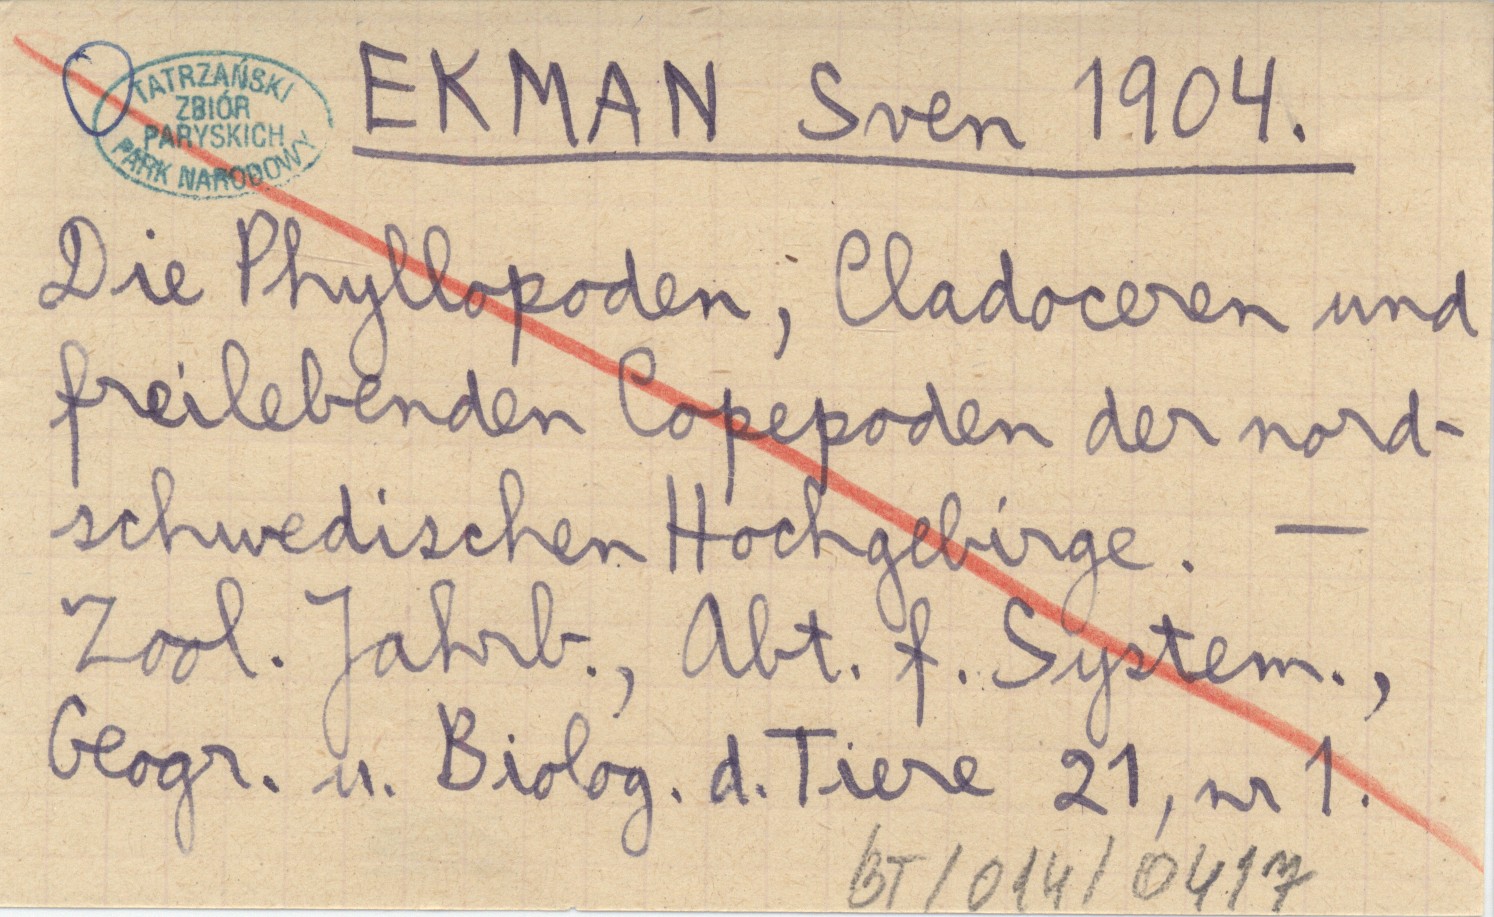 TATRZAŃSKI
ZBIÓR
PARYSKICH
PARK NARODOWY
EKMAN Sven 1904.
Die Phyllopoden, Cladoceren und
freilebenden Copepoden der nord-
schwedischen Hochgebirge. —
Zool. Jahrb., Abt. f. System.,
Geogr. u. Biolog. d. Tiere 21, nr 1.
BT/014/0417